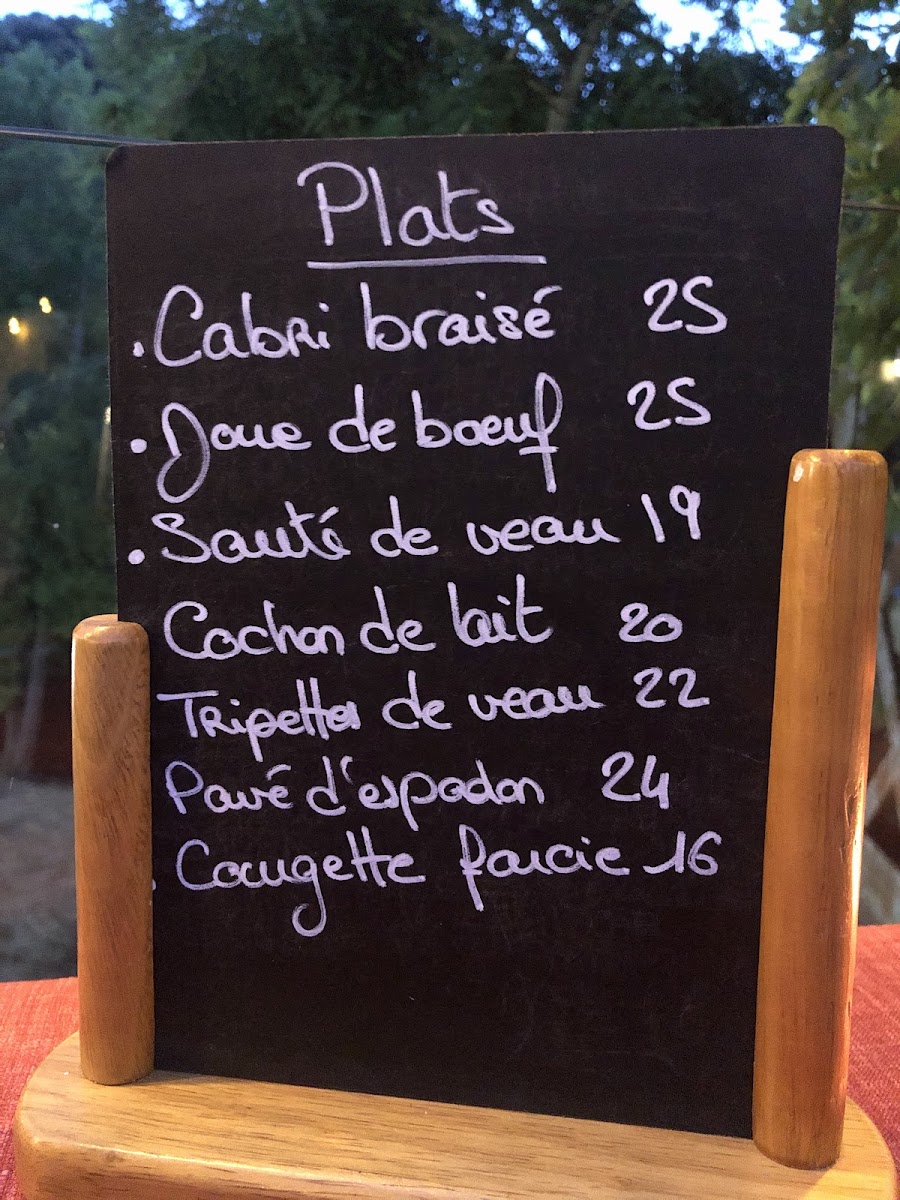 Plats
. Cabri braisé 25
. Joue de boeuf 25
. Sauté de veau 19
Cochon de lait 20
Tripettes de veau 22
Pavé d'espadon 24
. Courgette farcie 16